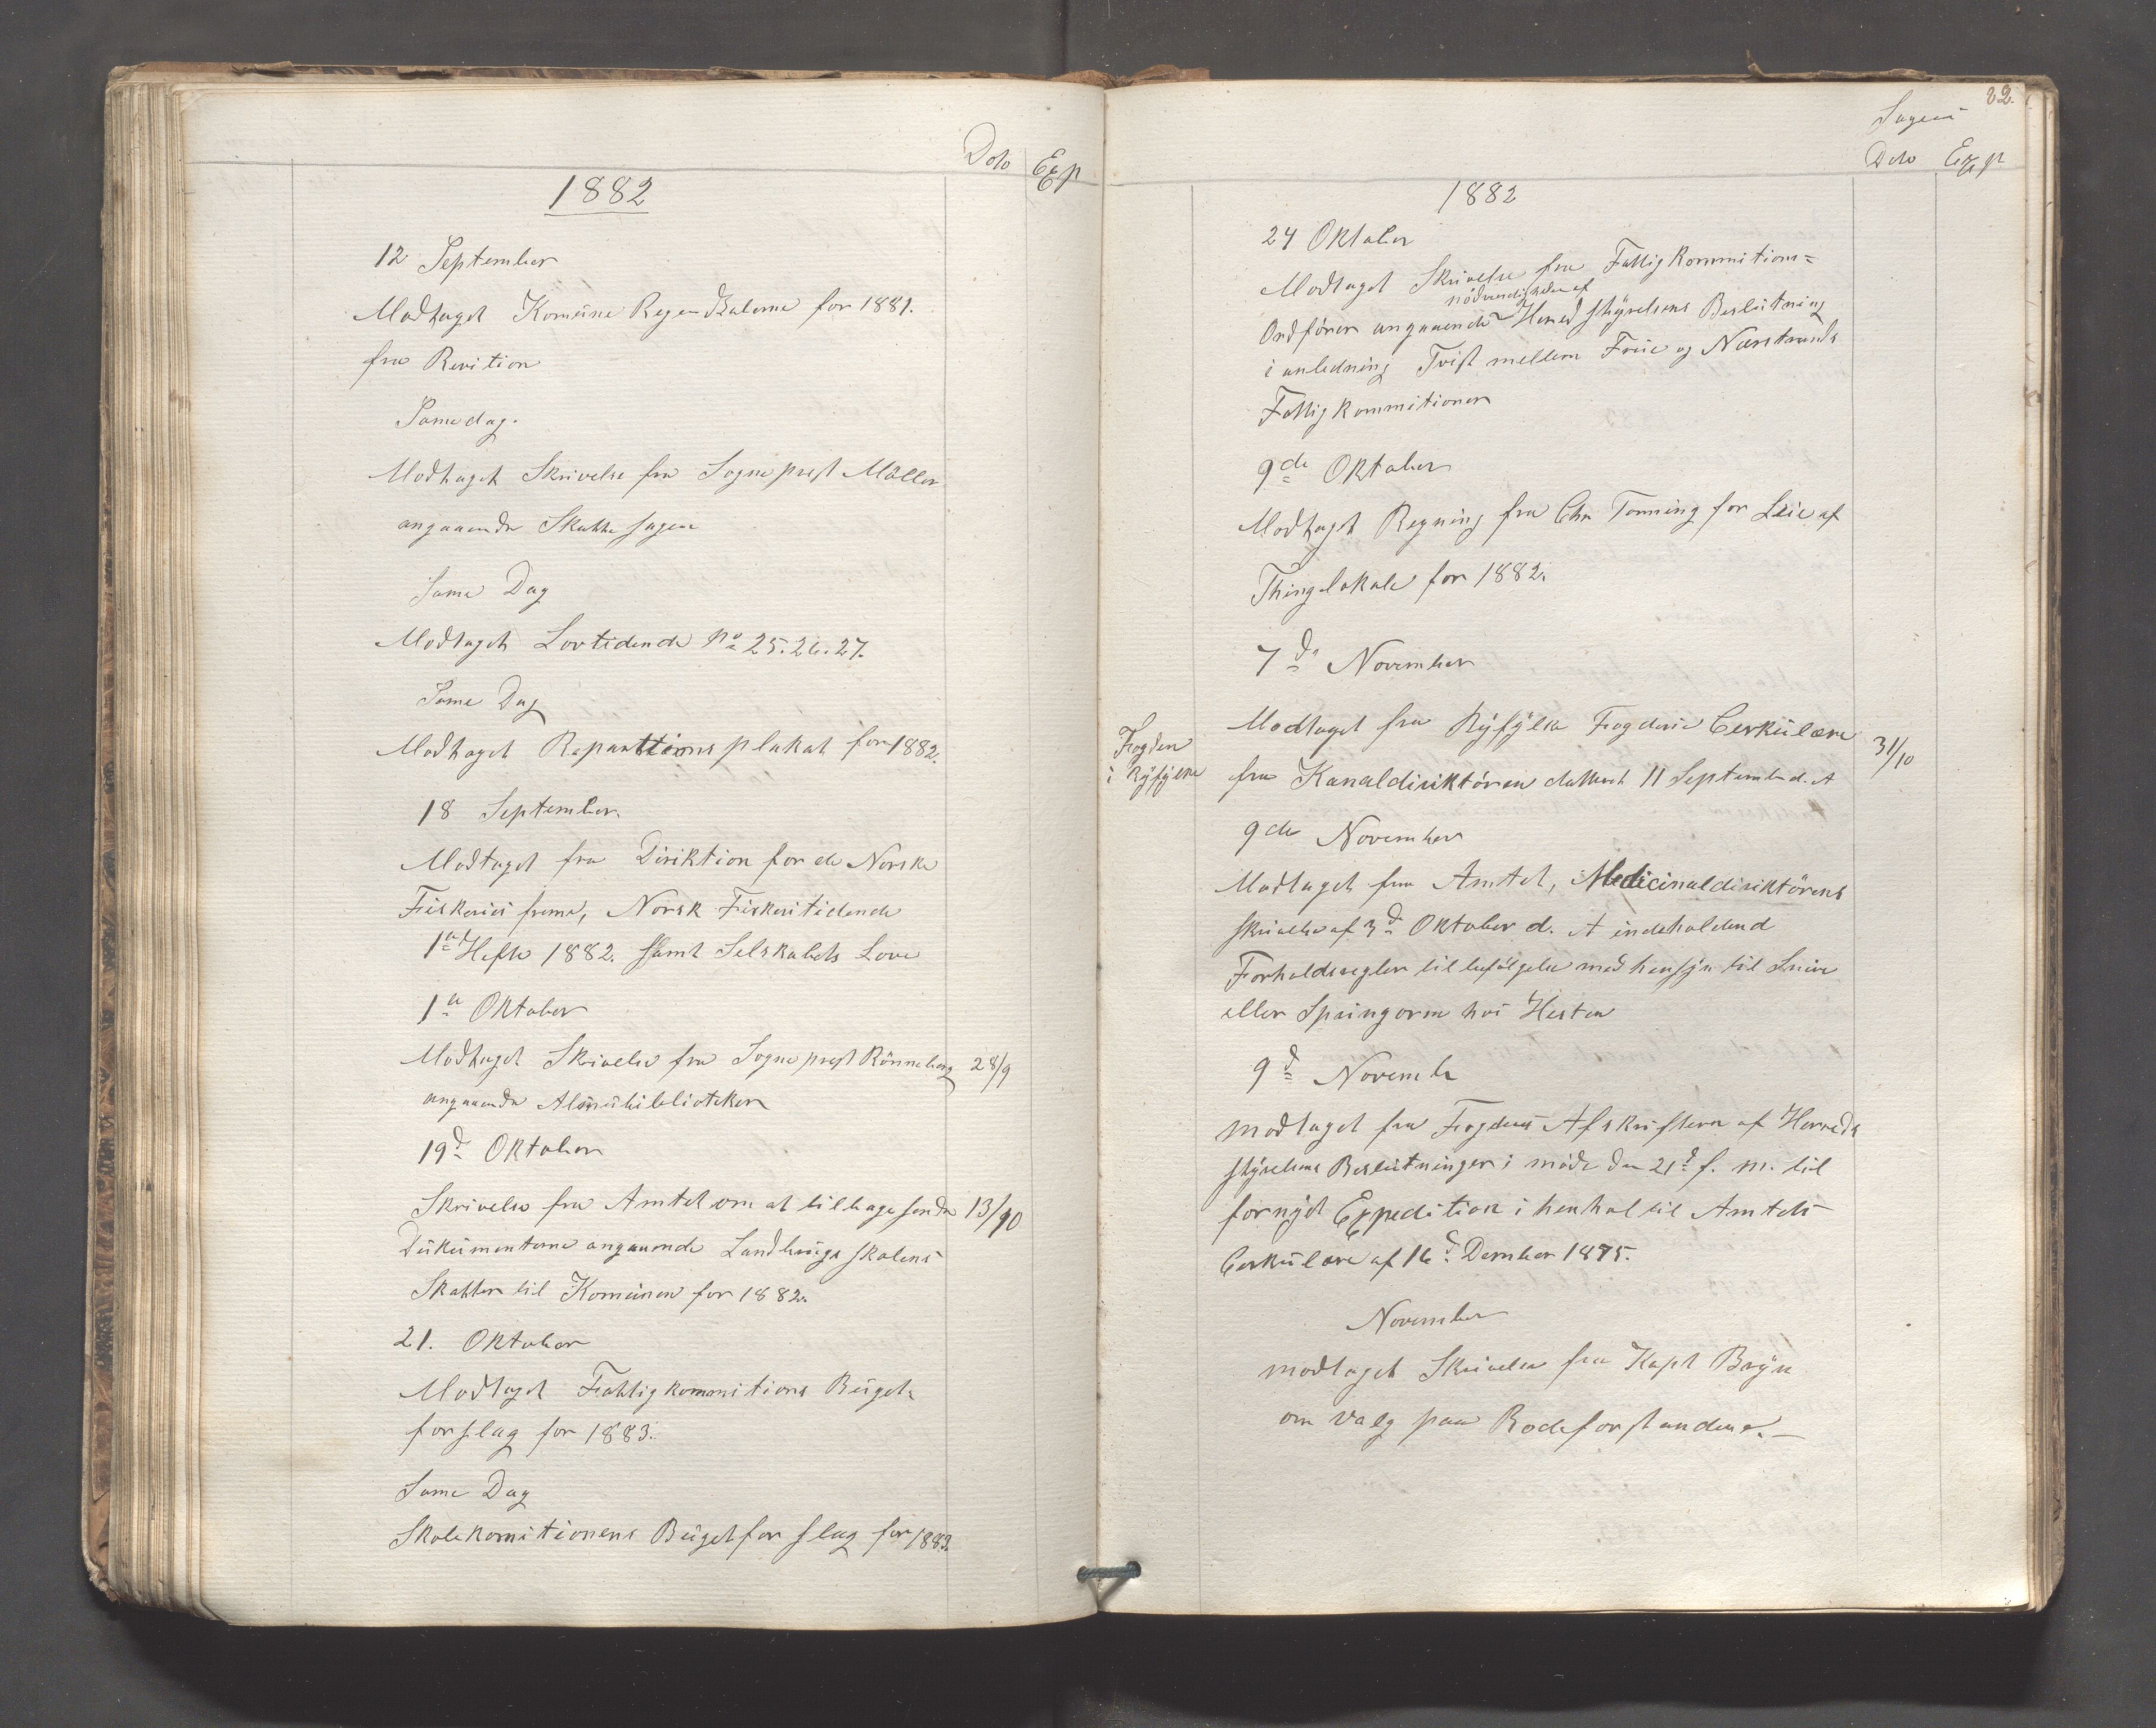 Dato Exp
1882
12 September
Modtaget Komüne Regenskaberne for 1881.
fra Revition
Samedag.
Modtaget Skrivelse fra Sogneprest Möller
angaaende Skattesagen
Same Dag
Modtaget Lovtidende No 25.26.27.
Same Dag
Modtaget Repartitions plakat for 1882.
18 September.
Modtaget fra Diriktion for de Norske
Fiskeries freme, Norsk Fiskeritidende
1te Hefte 1882. samt Selskabets Love
1te Oktober
Modtaget Skrivelse fra Sogneprest Rönneberg 28/9
angaaende Almübiblioteker
19d Oktober
Skrivelse fra Amtet om at tilbagesende 13/10
Dükümenterne angaaende Landbrügsskolens
Skatter til Komünen for 1882.
21. Oktober
Modtaget Fattigkommitions Büget
forslag for 1883.
Same Dag
Skolekomitionens Bügetforslag for 1883.
82.
Sagens
Dato Exp
1882
24 Oktober
Modtaget Skrivelse fra Fattigkommitions=
nödvendigheden af
Ordförer angaaende Heredstyrelsens Beslütning
i anledning Tvist mellem Früe og Nærstrands
Fattigkommitioner
9de Oktober
Modtaget Regning fra Chr Tonning for Leie af
Thinglokale for 1882.
7d November
Modtaget fra Ryfylke Fogderie Cerkülære 31/10
Fogden
i Ryfylke
fra Kanaldiriktören datteret 11 September d. A
9de November
Modtaget fra Amtet, Medicinaldiriktörens
skrivelse af 3d Oktober d. A indeholdend
Forholdsregler til befölgelse med hensyn til Snive
eller Springorm hos Hesten
9d Novemb
modtaget fra Fogden Afskriftern af Herreds
styrelsens Beslütninger i möde den 21d f. m. til
fornyet Expedition i henhol til Amtets
Cerkülære af 16d Dember 1875.
November
modtaget Skrivelse fra Kapt Bryn
om valg paa Rodeforstandere.